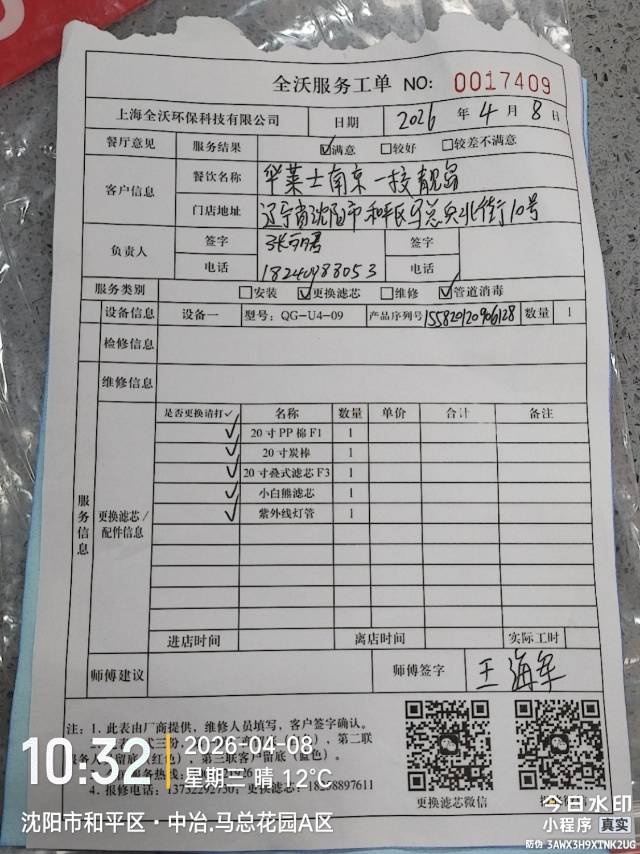 全沃服务工单 NO: 0017409
上海全沃环保科技有限公司 日期 2026 年 4 月 8 日
餐厅意见 服务结果 ☑满意 □较好 □较差不满意
客户信息 餐饮名称 华莱士南京一技靓岛
门店地址 辽宁省沈阳市和平区马总兵北街10号
负责人 签字 签字
电话 18240988053 电话
服务类别 □安装 ☑更换滤芯 □维修 ☑管道消毒
设备信息 设备一 型号: QG-U4-09 产品序列号 155820120906128 数量 1
检修信息
维修信息
服务信息
更换滤芯/配件信息
是否更换请打✓ 名称 数量 单价 合计 备注
✓ 20寸PP棉F1 1
✓ 20寸炭棒 1
✓ 20寸叠式滤芯F3 1
✓ 小白熊滤芯 1
✓ 紫外线灯管 1
进店时间 离店时间 实际工时
师傅建议 师傅签字 王海军
注: 1. 此表由厂商提供, 维修人员填写, 客户签字确认。
第二联
第三联客户留底(蓝色)。
4. 报修电话:
更换滤芯微信
10:32
2026-04-08
星期三 晴 12℃
沈阳市和平区·中冶.马总花园A区
今日水印
小程序 真实
防伪 3AWX3H9XTNK2UG